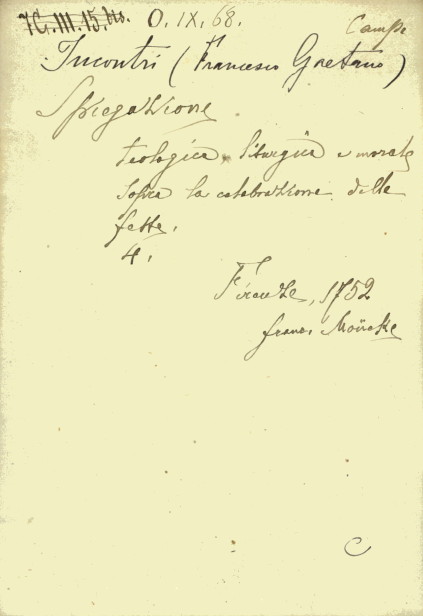 7C. III. 15. bis. O. IX. 68.
Camp.
Incontri (Francesco Gaetano)
Spiegazione
teologica, liturgica e morale
sopra la celebrazione delle
feste.
4.
Firenze, 1752
franc. Moücke
C